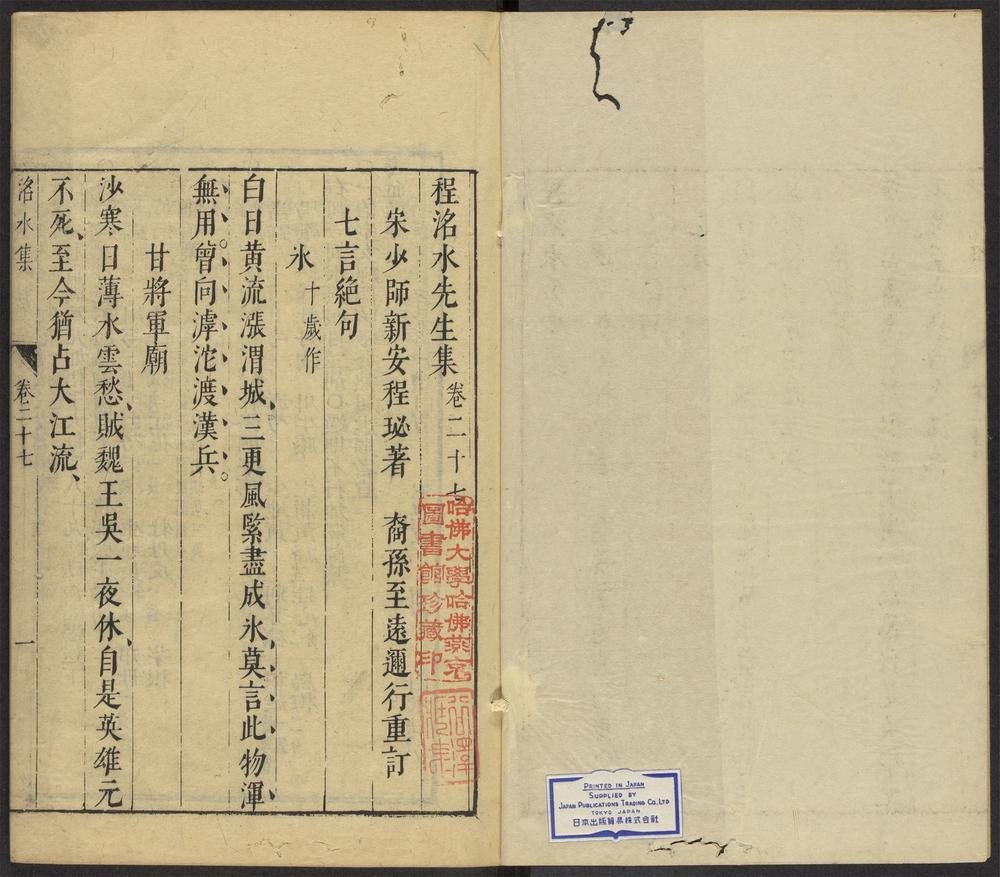 程洺水先生集 卷二十七
宋少師新安程珌著 裔孫至遠邇行重訂
七言絕句
氷 十歲作
白日黄流漲渭城、三更風緊盡成氷、莫言此物渾
無用。曾向滹沱渡漢兵。
甘將軍廟
沙寒日薄水雲愁、賊魏王吳一夜休、自是英雄元
不死、至今猶占大江流、
洺水集 卷二十七 一
哈佛大學哈佛燕京
圖書館珍藏印
PRINTED IN JAPAN
SUPPLIED BY
JAPAN PUBLICATIONS TRADING CO., LTD
TOKYO JAPAN
日本出版貿易株式会社